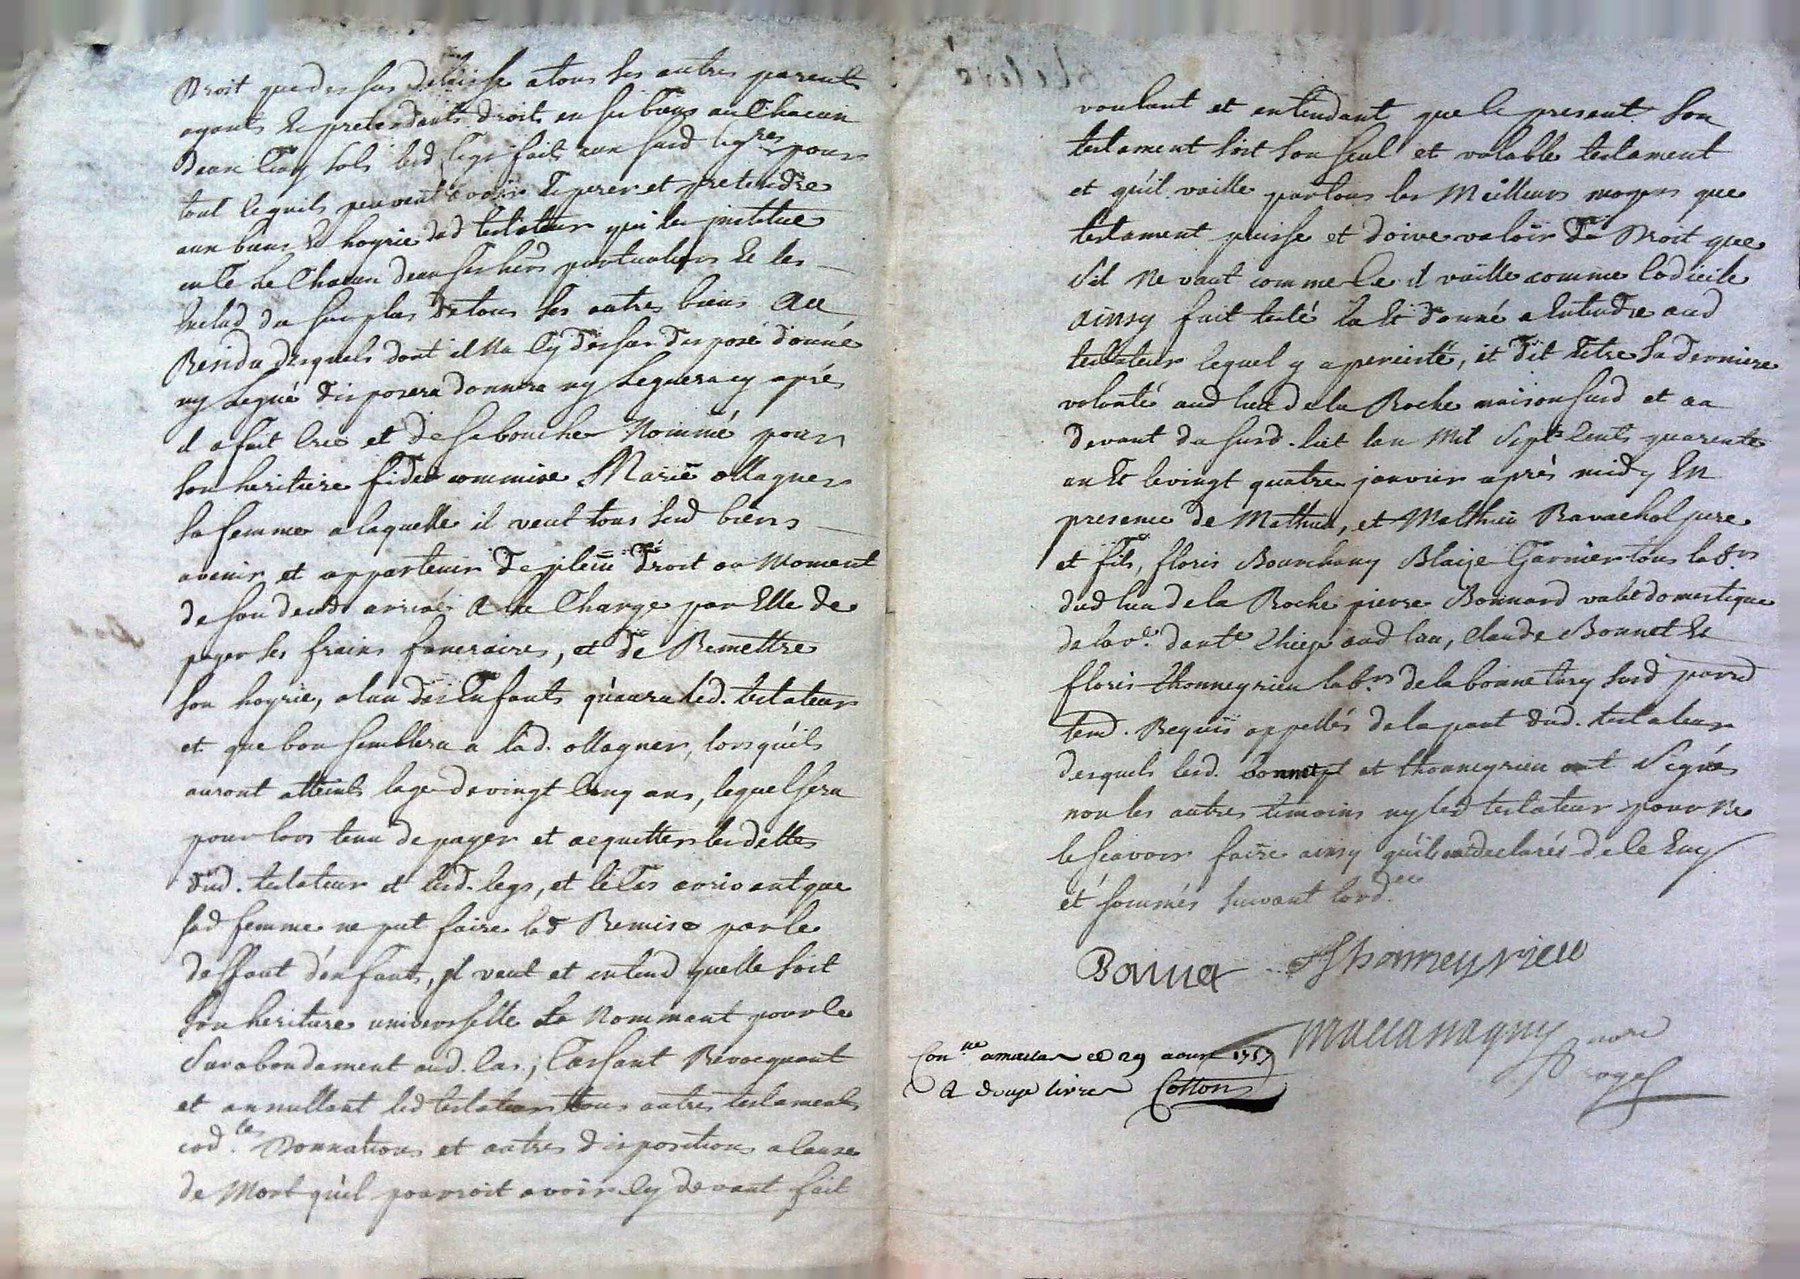 Droit que dessus delaisse a tous ses autres parents
ayants et pretendants droits en ses biens au Chacun
d'eux Cinq sols lesd. legs faits aux susd. leg.res pour
tout ce quils peuvent avoir Esperer et pretendre
aux biens et hoyrie dud testateur qui les institue
en ce Chacun d'eux ses hers particuliers Et les
Exclud du surplus de tous ses autres biens Au
Residu desquels dont il Na Cy dessus disposé donné
ny Legué disposera donnera ny Leguera cy aprés
il a fait Créé et de sa bouche Nommé pour
son heritiere fidei commise Marie ollagner
sa femme a laquelle il veut tous sesd biens
avenir et appartenir de plein droit au Moment
de son deced arrivé A la Charge par Elle de
payer ses frains funeraires, et de Remettre
son hoyrie, a lun des Enfants qu'aura led. testateur
et que bon semblera a lad. ollagner, lorsquils
auront atteints lage de vingt Cinq ans, lequel sera
pour lors tenu de payer et acquitter les dettes
dud. testateur et lesd. legs, et le Cas arrivant que
sad femme ne put faire lad Remise par le
deffaut denfant, il veut et entend quelle soit
son heritiere universelle La Nommant pour le
surabondament aud. Cas; Cassant Revocquant
et annullant led testateur tous autres testaments
cod.les Donnations et autres dispositions a Cause
de Mort quil pourroit avoir Cy devant fait
voulant et entendant que le present son
testament soit son seul et valable testament
et qu'il vaille par tous les Meilleurs moyens que
testament puisse et doive valoir de Droit que
s'il Ne vaut comme Ce il vaille comme Codicile
Ainsy fait testé Lu Et donné a Entendre aud
testateur lequel y a persisté, et dit Etre sa derniere
volonté aud lieu de la Roche maison susd et au
devant du susd. lict lan Mil Sept Cents quarente
un Et le vingt quatre janvier aprés midy En
presence de Mathieu, et Mathieu Ravachol pere
et fils, floris Bourchany Blaize Garnier tous lab.rs
dud lieu de la Roche pierre Bonnard valet domestique
de la v.e aud lieu, Claude Bonnet Et
floris thonneyrieu lab.rs de la bonnetary
Requis appellés de la part dud. testateur
desquels lesd. bonnet et thonneyrieu ont Signés
non les autres temoins ny led testateur pour Ne
le sçavoir faire ainsy quils ont declarés de ce Enq
et sommés suivant l'ord.ce
Bonnet Thonneyrieu
Maccanagny
Con.lle a ce 29 aoust 1757
A douze livres Cotton